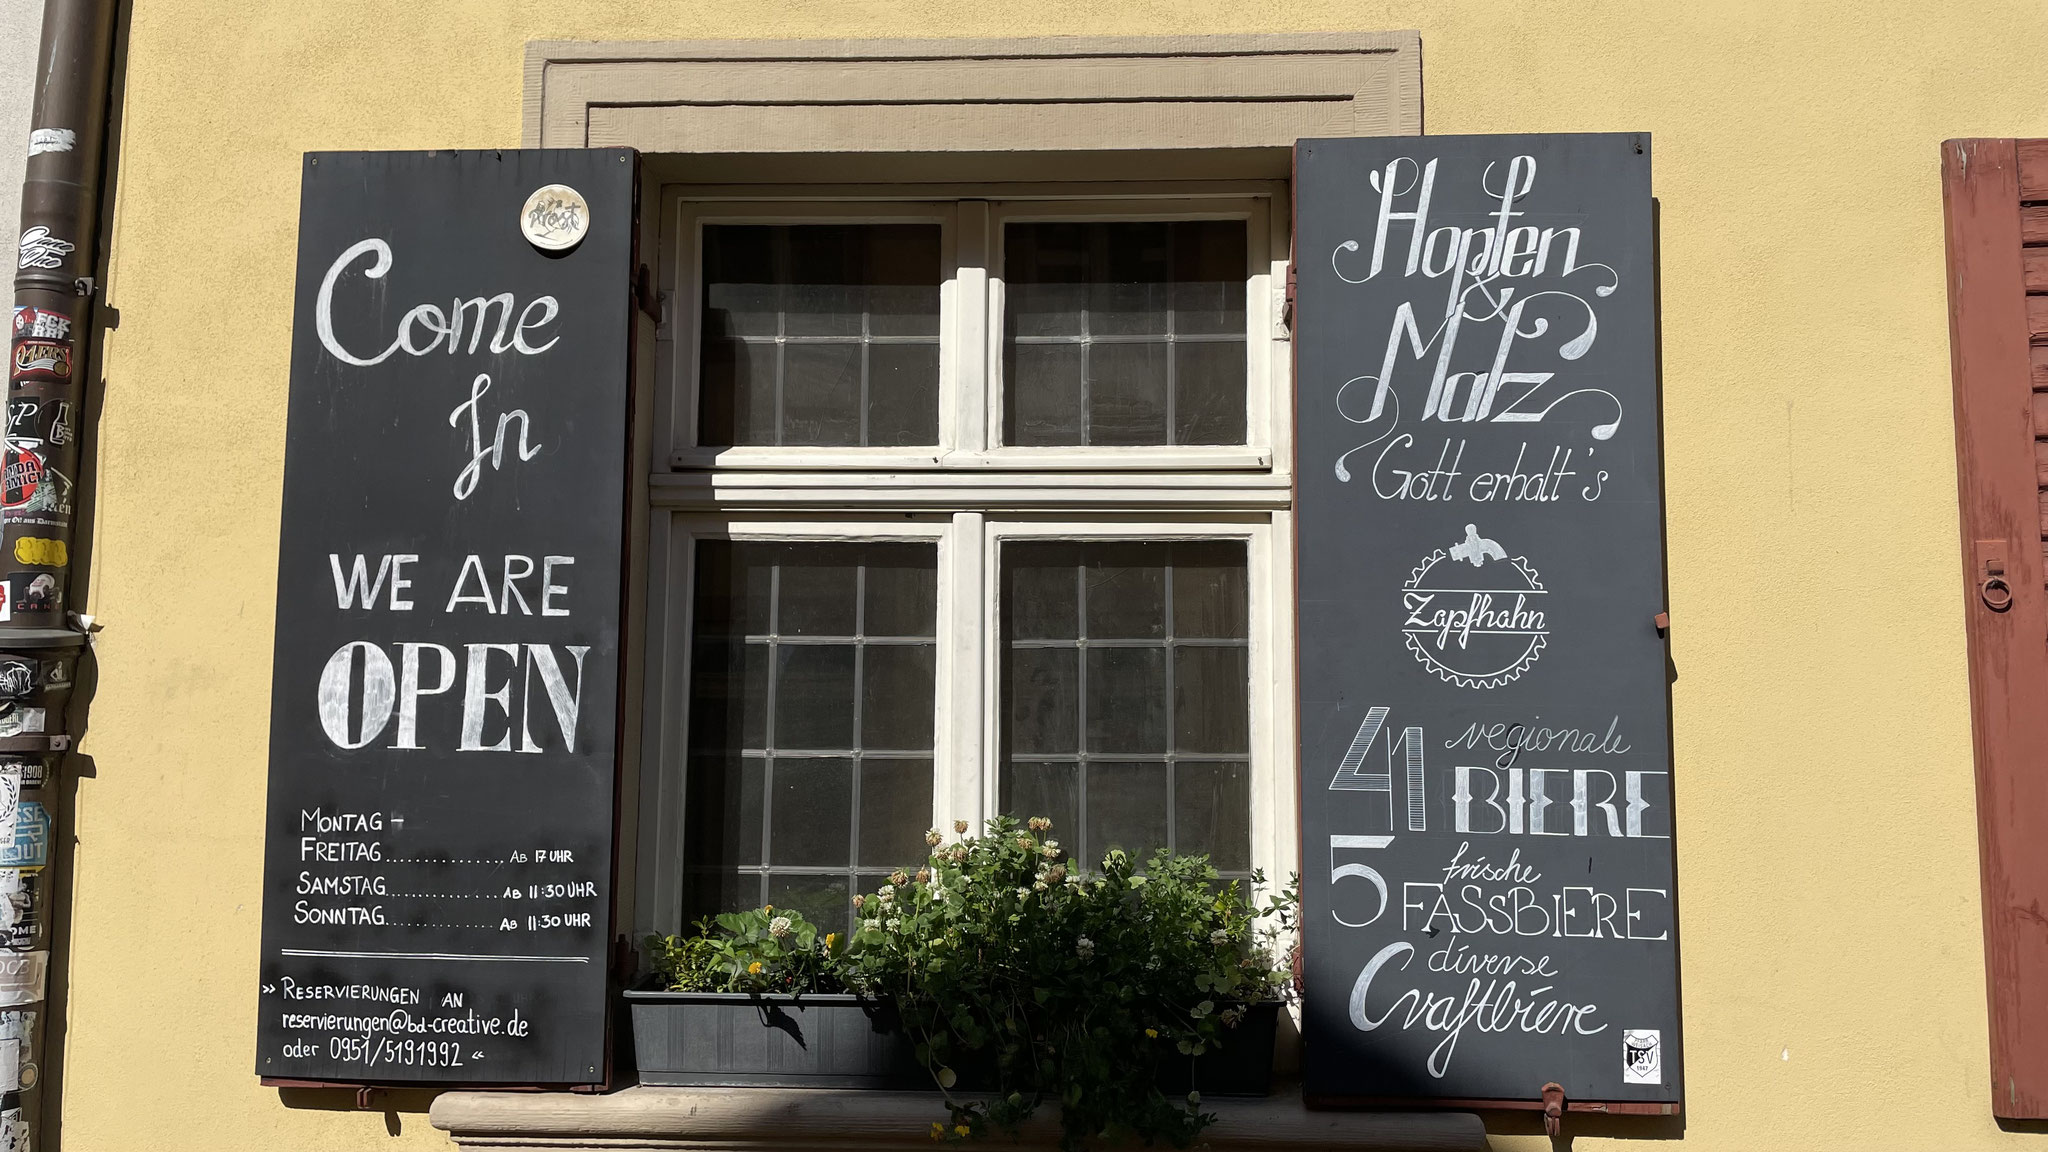 Prost
Come
In
WE ARE
OPEN
MONTAG -
FREITAG............... AB 17 UHR
SAMSTAG............... AB 11:30 UHR
SONNTAG............... AB 11:30 UHR
» RESERVIERUNGEN AN
reservierungen@bd-creative.de
oder 0951/5191992 «
Hopfen
&
Malz
Gott erhalt's
Zapfhahn
41 regionale
BIERE
5 frische
FASSBIERE
diverse
Craftbiere
TSV
1947
1908